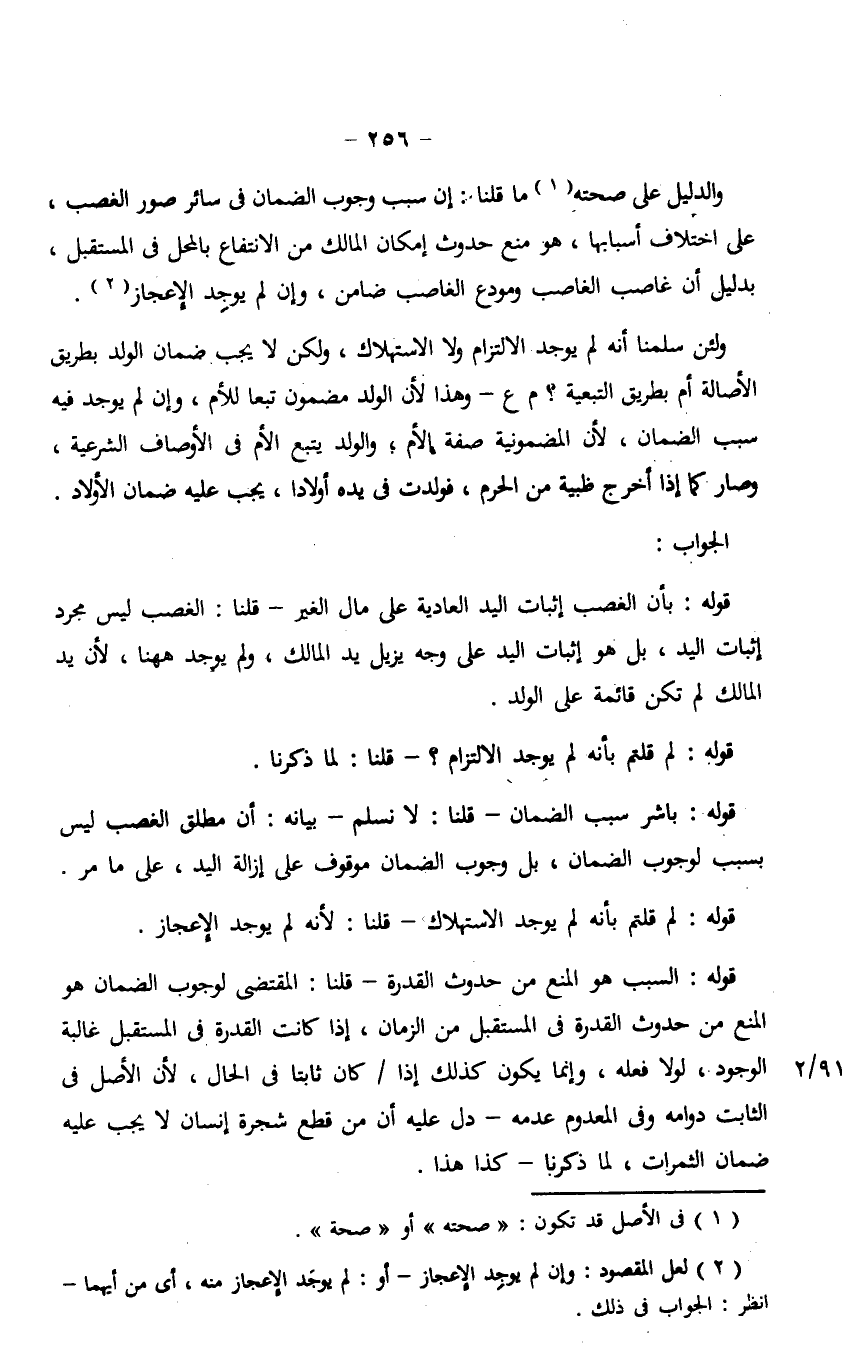 – ٢٥٦ –
والدليل على صحته(١) ما قلنا : إن سبب وجوب الضمان فى سائر صور الغصب ،
على اختلاف أسبابها ، هو منع حدوث إمكان المالك من الانتفاع بالمحل فى المستقبل ،
بدليل أن غاصب الغاصب ومودع الغاصب ضامن ، وإن لم يوجِد الإعجاز(٢) .
ولئن سلمنا أنه لم يوجد الالتزام ولا الاستهلاك ، ولكن لا يجب ضمان الولد بطريق
الأصالة أم بطريق التبعية ؟ م ع – وهذا لأن الولد مضمون تبعا للأم ، وإن لم يوجد فيه
سبب الضمان ، لأن المضمونية صفة الأم ؛ والولد يتبع الأم فى الأوصاف الشرعية ،
وصار كما إذا أخرج ظبية من الحرم ، فولدت فى يده أولادا ، يجب عليه ضمان الأولاد .
الجواب :
قوله : بأن الغصب إثبات اليد العادية على مال الغير – قلنا : الغصب ليس مجرد
إثبات اليد ، بل هو إثبات اليد على وجه يزيل يد المالك ، ولم يوجد ههنا ، لأن يد
المالك لم تكن قائمة على الولد .
قوله : لم قلتم بأنه لم يوجد الالتزام ؟ – قلنا : لما ذكرنا .
قوله : باشر سبب الضمان – قلنا : لا نسلم – بيانه : أن مطلق الغصب ليس
بسبب لوجوب الضمان ، بل وجوب الضمان موقوف على إزالة اليد ، على ما مر .
قوله : لم قلتم بأنه لم يوجد الاستهلاك – قلنا : لأنه لم يوجد الإعجاز .
قوله : السبب هو المنع من حدوث القدرة – قلنا : المقتضى لوجوب الضمان هو
المنع من حدوث القدرة فى المستقبل من الزمان ، إذا كانت القدرة فى المستقبل غالبة
الوجود ، لولا فعله ، وإنما يكون كذلك إذا / كان ثابتا فى الحال ، لأن الأصل فى ٢/٩١
الثابت دوامه وفى المعدوم عدمه – دل عليه أن من قطع شجرة إنسان لا يجب عليه
ضمان الثمرات ، لما ذكرنا – كذا هذا .
( ١ ) فى الأصل قد تكون : « صحته » أو « صحة » .
( ٢ ) لعل المقصود : وإن لم يوجِد الإعجاز – أو : لم يوجَد الإعجاز منه ، أى من أيهما –
انظر : الجواب فى ذلك .